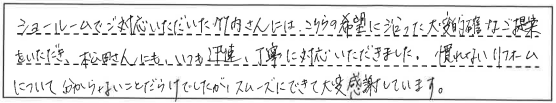 ショールームでご対応いただいた竹内さんには、こちらの希望に沿った大変的確なご提案
をいただき、松田さんにも、いつも迅速、丁寧に対応いただきました。慣れないリフォーム
について分からないことだらけでしたが、スムーズにできて大変感謝しています。